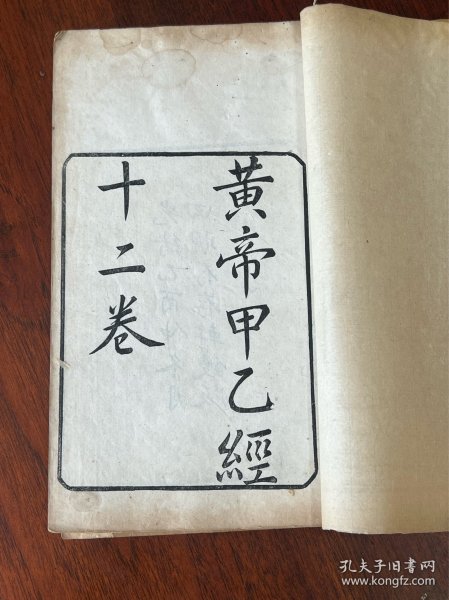 黄帝甲乙經
十二卷
孔夫子旧书网
www.kongfz.com